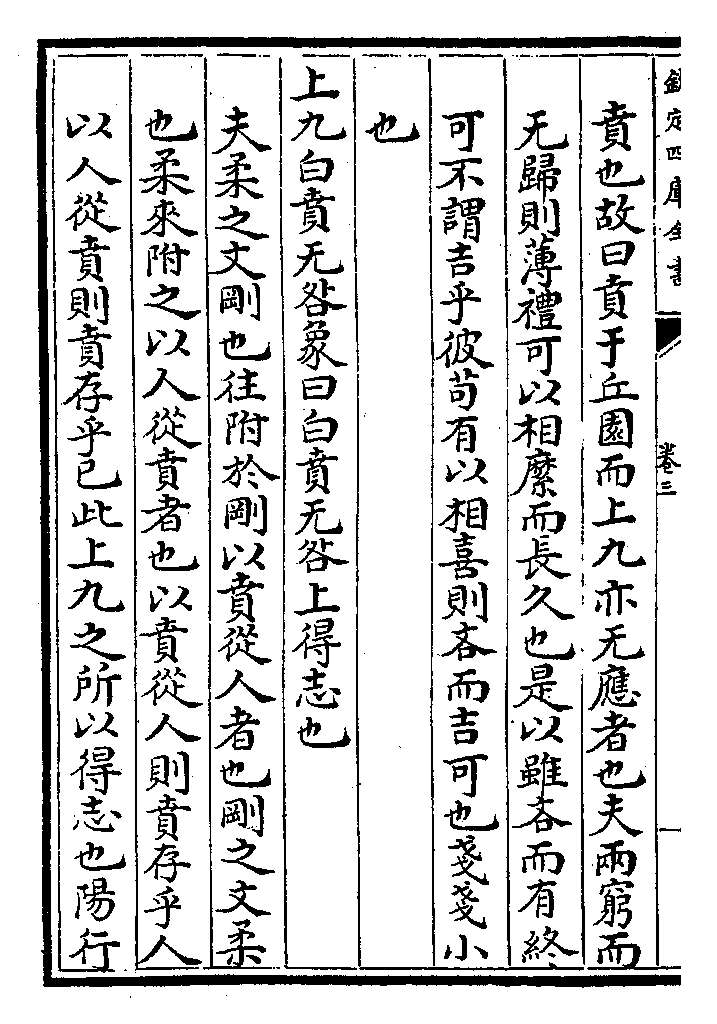 欽定四庫全書
卷三
賁也故曰賁于丘園而上九亦无應者也夫兩窮而
无歸則薄禮可以相縻而長久也是以雖吝而有終
可不謂吉乎彼苟有以相喜則吝而吉可也戔戔小
也
上九白賁无咎象曰白賁无咎上得志也
夫柔之文剛也往附於剛以賁從人者也剛之文柔
也柔來附之以人從賁者也以賁從人則賁存乎人
以人從賁則賁存乎已此上九之所以得志也陽行